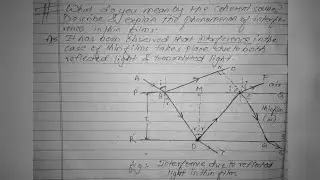 # What do you mean by the coherent source?
Describe & explain the phenomena of interfe-
rence in thin films
Ans It has been observed that interference in the
case of thin films takes place due to both
reflected light & transmitted light.
A C F
P B M E air
thin film
R D G
T
fig:- Interference due to reflected
light in thin film